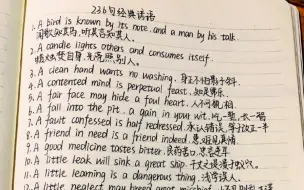 236句经典谚语
1. A bird is known by its note, and a man by his talk.
闻歌知鸟, 听其言知其人.
2. A candle lights others and consumes itself.
蜡烛焚自身, 光亮照别人.
3. A clean hand wants no washing. 身正不怕影子斜.
4. A contented mind is perpetual feast. 知足常乐.
5. A fair face may hide a foul heart. 人不可貌相.
6. A fall into the pit, a gain in your wit. 吃一堑, 长一智.
7. A fault confessed is half redressed. 承认错误, 等于改正一半
8. A friend in need is a friend indeed. 患难见真情.
9. A good medicine tastes bitter. 良药苦口, 忠言逆耳.
10. A little leak will sink a great ship. 千丈之堤, 溃于蚁穴.
11. A little learning is a dangerous thing. 浅学误人.
12. A little neglect may breed great mischief.